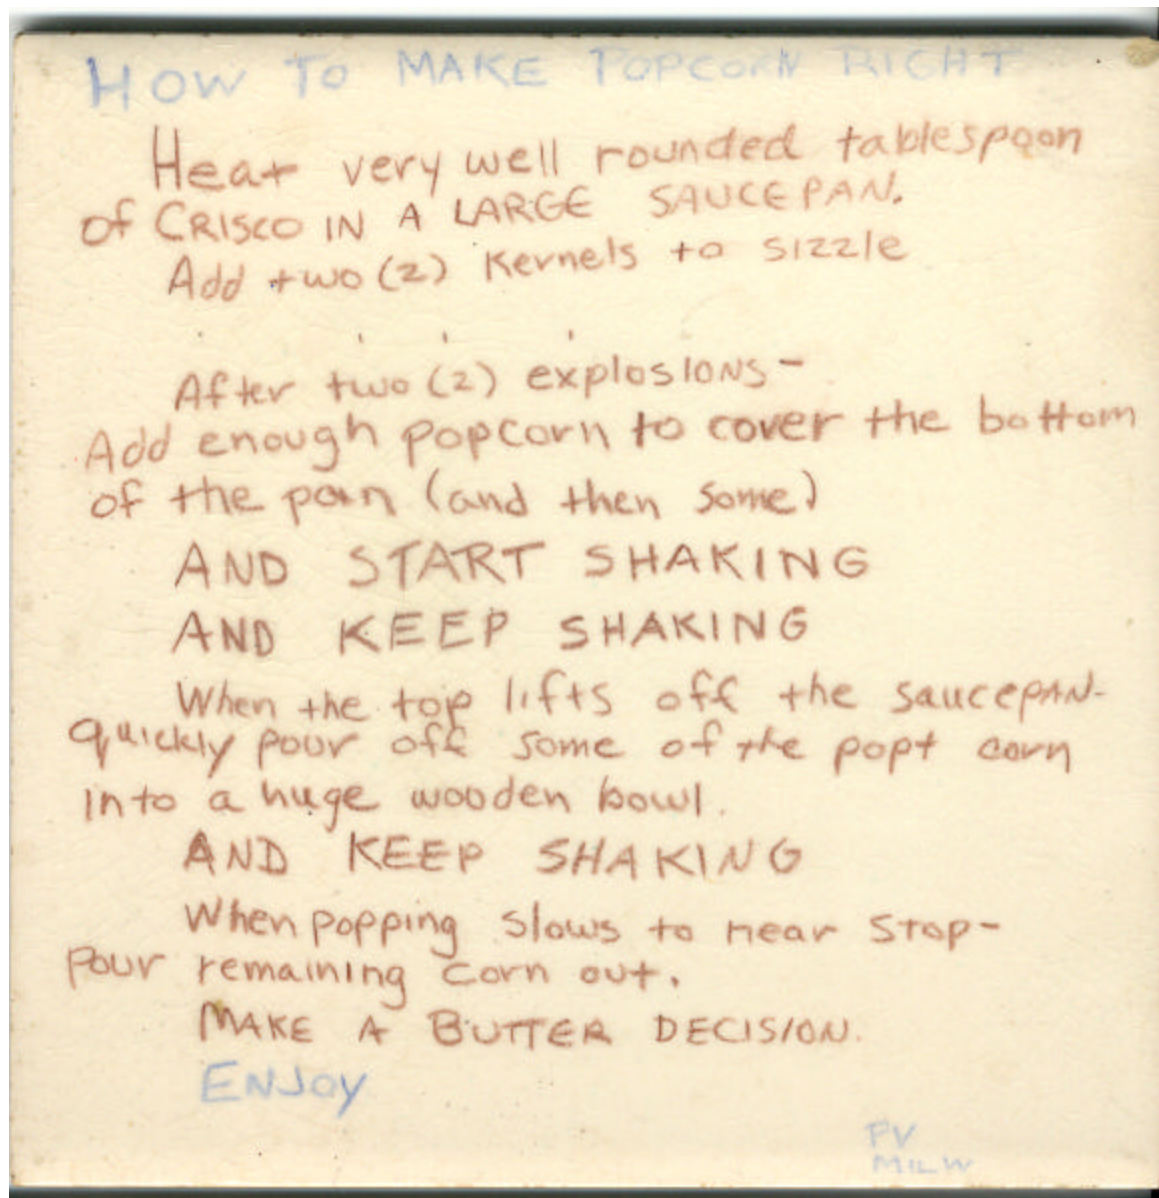 HOW TO MAKE POPCORN RIGHT
Heat very well rounded tablespoon
of CRISCO IN A LARGE SAUCEPAN.
Add two (2) Kernels to sizzle
. . . .
After two (2) explosIONS-
Add enough popcorn to cover the bottom
of the pan (and then some)
AND START SHAKING
AND KEEP SHAKING
When the top lifts off the saucepAN-
quickly pour off some of the popt corn
into a huge wooden bowl.
AND KEEP SHAKING
When popping slows to near stop-
pour remaining corn out.
MAKE A BUTTER DECISION.
ENJoy
PV
MILW